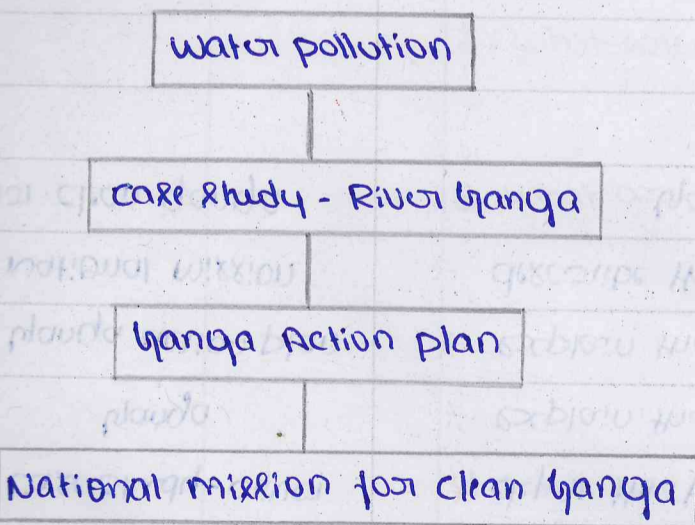 Water pollution
Case study - River Ganga
Ganga Action plan
National mission for clean Ganga